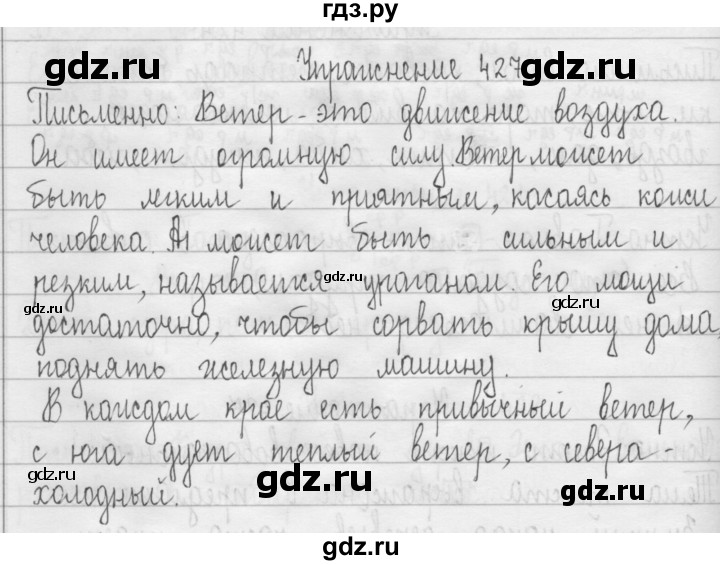 гдз.ру
Упражнение 427
gdz.ru gdz.ru
Письменно: Ветер - это движение воздуха.
Он имеет огромную силу Ветер может
быть легким и приятным, касаясь кожи
человека. А может быть сильным и
резким, называется ураганом. Его мощи
gdz.ru gdz.ru gdz.ru
достаточно, чтобы сорвать крышу дома,
поднять железную машину.
В каждом крае есть привычный ветер,
с юга дует теплый ветер, с севера -
gdz.ru gdz.ru gdz.ru
холодный.
gdz.ru